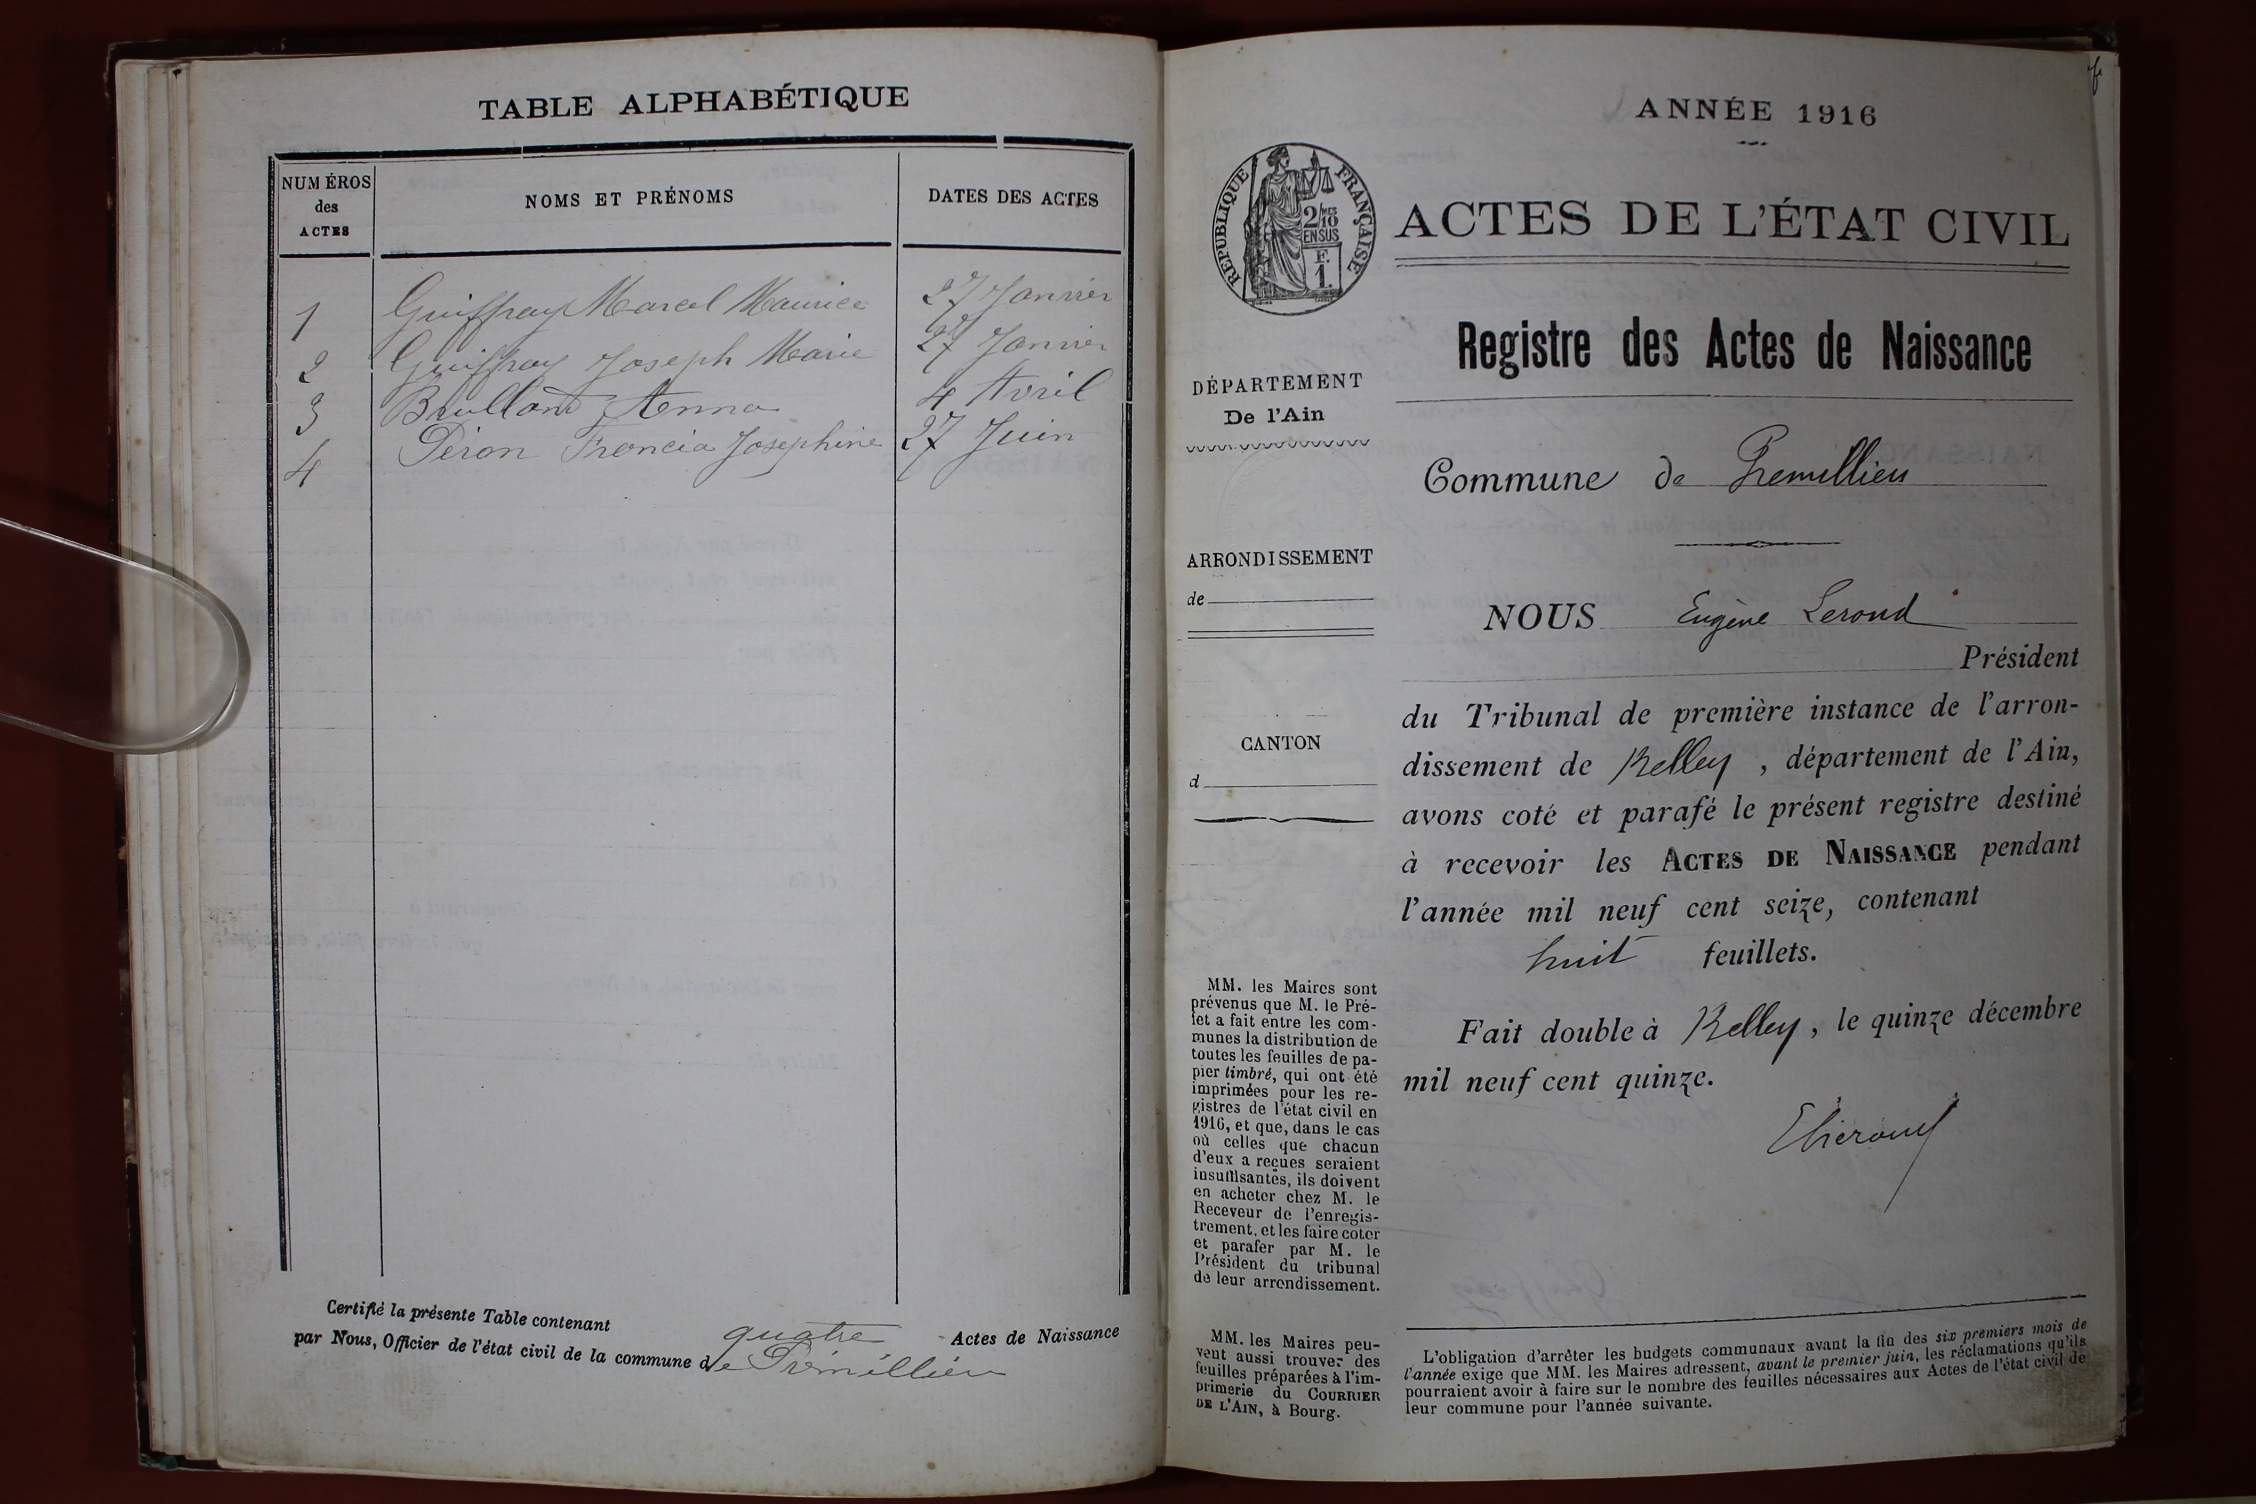 TABLE ALPHABÉTIQUE
NUMÉROS
des
ACTES
NOMS ET PRÉNOMS
DATES DES ACTES
1 Guiffray Marcel Maurice 27 Janvier
2 Guiffray Joseph Marie 27 Janvier
3 Brulland Anna 4 Avril
4 Péron Francia Joséphine 27 Juin
Certifié la présente Table contenant quatre Actes de Naissance
par Nous, Officier de l'état civil de la commune de Prémillieu
ANNÉE 1916
RÉPUBLIQUE FRANÇAISE
2/10
EN SUS
F.
1.
ACTES DE L'ÉTAT CIVIL
Registre des Actes de Naissance
DÉPARTEMENT
De l'Ain
Commune de Premillieu
ARRONDISSEMENT
de
CANTON
d
NOUS Eugène Leroud
Président
du Tribunal de première instance de l'arron-
dissement de Belley, département de l'Ain,
avons coté et parafé le présent registre destiné
à recevoir les ACTES DE NAISSANCE pendant
l'année mil neuf cent seize, contenant
huit feuillets.
Fait double à Belley, le quinze décembre
mil neuf cent quinze.
MM. les Maires sont
prévenus que M. le Pré-
fet a fait entre les com-
munes la distribution de
toutes les feuilles de pa-
pier timbré, qui ont été
imprimées pour les re-
gistres de l'état civil en
1916, et que, dans le cas
où celles que chacun
d'eux a reçues seraient
insuffisantes, ils doivent
en acheter chez M. le
Receveur de l'enregis-
trement, et les faire coter
et parafer par M. le
Président du tribunal
de leur arrondissement.
MM. les Maires peu-
vent aussi trouver des
feuilles préparées à l'im-
primerie du COURRIER
DE L'AIN, à Bourg.
L'obligation d'arrêter les budgets communaux avant la fin des six premiers mois de
l'année exige que MM. les Maires adressent, avant le premier juin, les réclamations qu'ils
pourraient avoir à faire sur le nombre des feuilles nécessaires aux Actes de l'état civil de
leur commune pour l'année suivante.